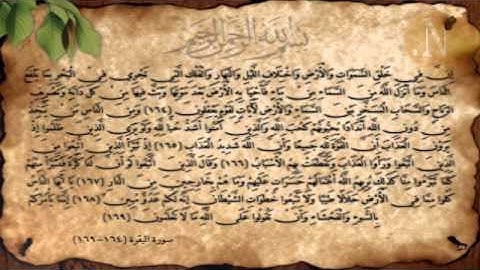 بسم الله الرحمن الرحيم
.N
إِنَّ فِي خَلْقِ السَّمَوَاتِ وَالْأَرْضِ وَاخْتِلَافِ اللَّيْلِ وَالنَّهَارِ وَالْفُلْكِ الَّتِي تَجْرِي فِي الْبَحْرِ بِمَا يَنْفَعُ
النَّاسَ وَمَا أَنْزَلَ اللَّهُ مِنَ السَّمَاءِ مِنْ مَاءٍ فَأَحْيَا بِهِ الْأَرْضَ بَعْدَ مَوْتِهَا وَبَثَّ فِيهَا مِنْ كُلِّ دَابَّةٍ وَتَصْرِيفِ
الرِّيَاحِ وَالسَّحَابِ الْمُسَخَّرِ بَيْنَ السَّمَاءِ وَالْأَرْضِ لَآيَاتٍ لِقَوْمٍ يَعْقِلُونَ (١٦٤) وَمِنَ النَّاسِ مَنْ يَتَّخِذُ
مِنْ دُونِ اللَّهِ أَنْدَادًا يُحِبُّونَهُمْ كَحُبِّ اللَّهِ وَالَّذِينَ آمَنُوا أَشَدُّ حُبًّا لِلَّهِ وَلَوْ يَرَى الَّذِينَ ظَلَمُوا إِذْ
يَرَوْنَ الْعَذَابَ أَنَّ الْقُوَّةَ لِلَّهِ جَمِيعًا وَأَنَّ اللَّهَ شَدِيدُ الْعَذَابِ (١٦٥) إِذْ تَبَرَّأَ الَّذِينَ اتُّبِعُوا مِنَ
الَّذِينَ اتَّبَعُوا وَرَأَوُا الْعَذَابَ وَتَقَطَّعَتْ بِهِمُ الْأَسْبَابُ (١٦٦) وَقَالَ الَّذِينَ اتَّبَعُوا لَوْ أَنَّ لَنَا كَرَّةً فَنَتَبَرَّأَ مِنْهُمْ
كَمَا تَبَرَّءُوا مِنَّا كَذَلِكَ يُرِيهِمُ اللَّهُ أَعْمَالَهُمْ حَسَرَاتٍ عَلَيْهِمْ وَمَا هُمْ بِخَارِجِينَ مِنَ النَّارِ (١٦٧) يَا أَيُّهَا النَّاسُ
كُلُوا مِمَّا فِي الْأَرْضِ حَلَالًا طَيِّبًا وَلَا تَتَّبِعُوا خُطُوَاتِ الشَّيْطَانِ إِنَّهُ لَكُمْ عَدُوٌّ مُبِينٌ (١٦٨) إِنَّمَا يَأْمُرُكُمْ
بِالسُّوءِ وَالْفَحْشَاءِ وَأَنْ تَقُولُوا عَلَى اللَّهِ مَا لَا تَعْلَمُونَ (١٦٩)
سورة البقرة (١٦٤-١٦٩)